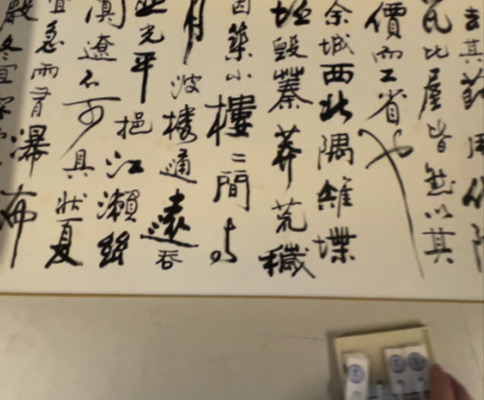 去其節用代陶
瓦比屋皆然以其
價而工省也
余城西北隅雉堞
圮毀蓁莽荒穢
因築小樓二間与
月波樓通遠吞
光平挹江瀨幽
闃遼不可具狀夏
宜急雨有瀑布
聲冬宜密